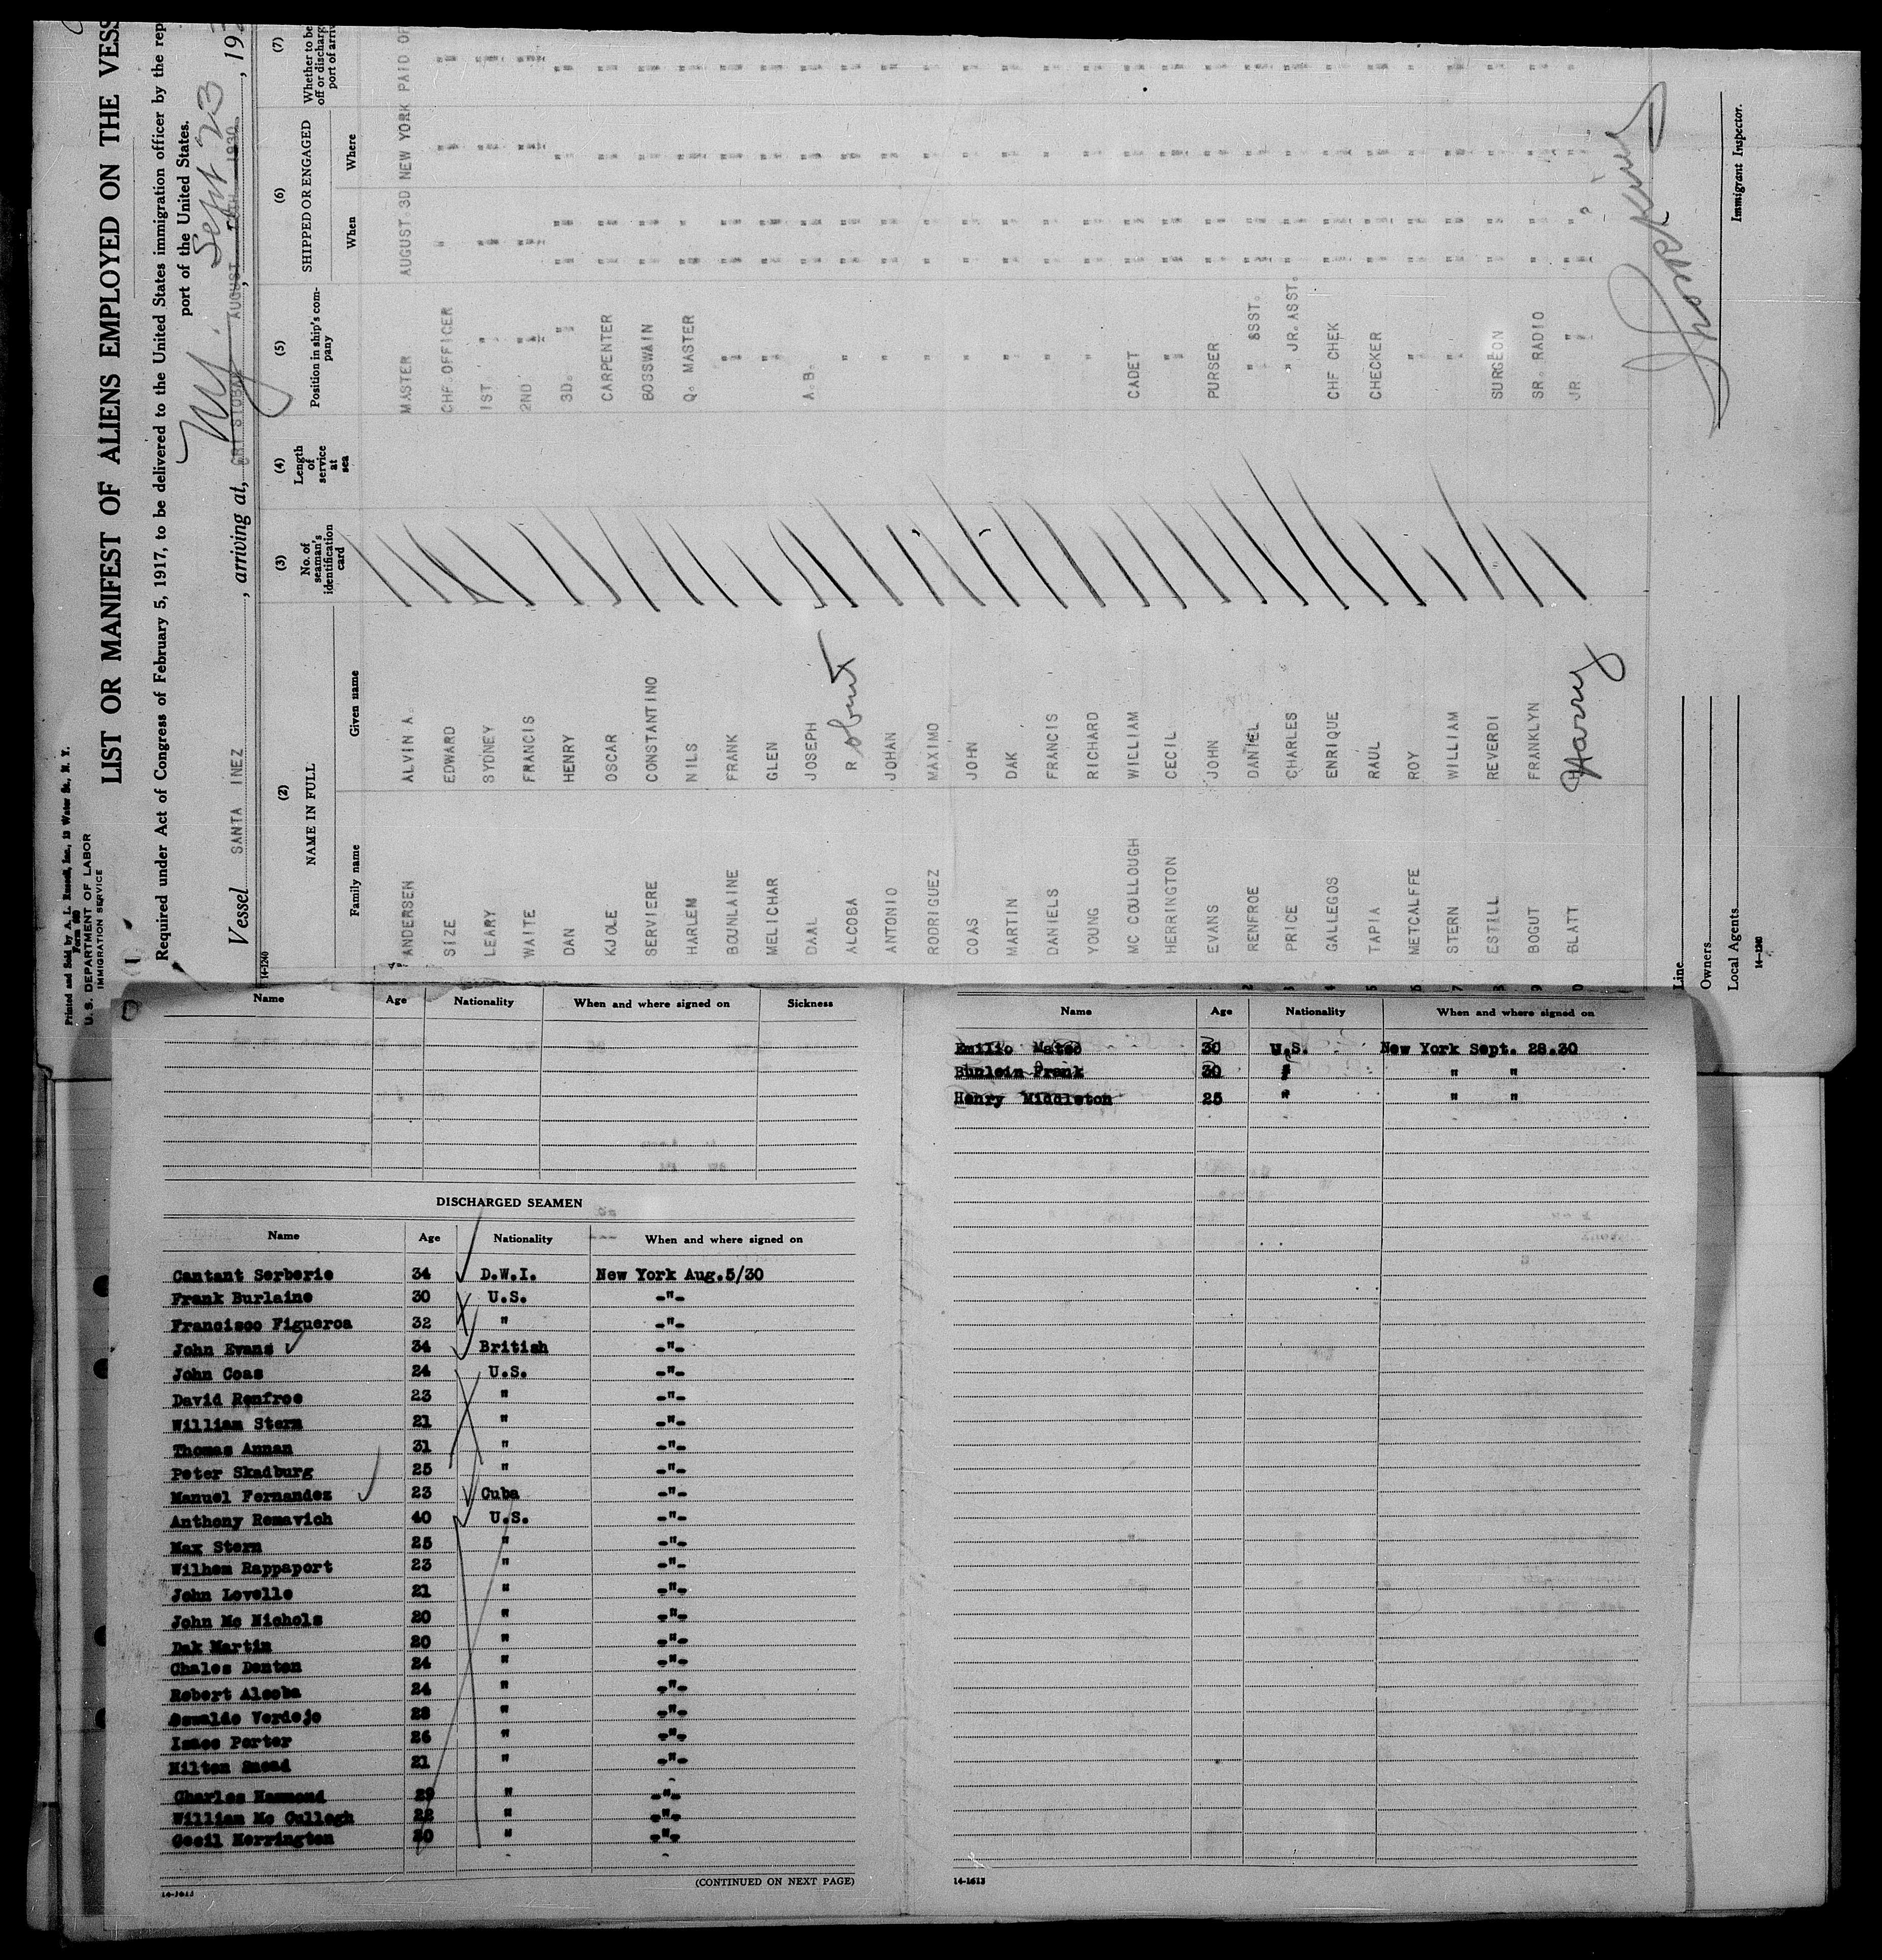 Printed and Sold by A. L. Russell, Inc., 12 Water St., N. Y.
Form 680
U. S. DEPARTMENT OF LABOR
IMMIGRATION SERVICE
LIST OR MANIFEST OF ALIENS EMPLOYED ON THE VESS
Required under Act of Congress of February 5, 1917, to be delivered to the United States immigration officer by the rep
port of the United States.
NY. Sept 23
Vessel SANTA INEZ, arriving at, AUGUST 1930, 19
14-1240
(2) (3) (4) (5) (6) (7)
NAME IN FULL
Family name Given name
No. of seaman's identification card
Length of service at sea
Position in ship's company
SHIPPED OR ENGAGED
When Where
Whether to be
off or discharg
port of arriv
ANDERSEN ALVIN A. MASTER AUGUST 3D NEW YORK PAID OF
SIZE EDWARD CHF.OFFICER " " "
LEARY SYDNEY 1ST " " " "
WAITE FRANCIS 2ND " " " "
DAN HENRY 3D. " " " " "
KJOLE OSCAR CARPENTER " " " "
SERVIERE CONSTANTINO BOSSWAIN " " " "
HARLEM NILS Q. MASTER " " " "
BOUNLAINE FRANK " " " " " "
MELICHAR GLEN " " " " " "
DAAL JOSEPH A.B. " " " "
ALCOBA Robert " " " " "
ANTONIO JOHAN " " " " "
RODRIGUEZ MAXIMO " " " " "
COAS JOHN " " " " "
MARTIN DAK " " " " "
DANIELS FRANCIS " " " " "
YOUNG RICHARD " " " " "
MC COULLOUGH WILLIAM CADET " " " "
HERRINGTON CECIL " " " " "
EVANS JOHN PURSER " " " "
RENFROE DANIEL " SSST. " " " "
PRICE CHARLES " JR. ASST. " " " "
GALLEGOS ENRIQUE CHF CHEK " " " "
TAPIA RAUL CHECKER " " " "
METCALFFE ROY " " " " "
STERN WILLIAM " " " " "
ESTILL REVERDI SURGEON " " " "
BOGUT FRANKLYN SR. RADIO " " " "
BLATT Harry JR. " " " " "
Line
Owners
Local Agents
14-1240
Immigrant Inspector.
Name Age Nationality When and where signed on Sickness
DISCHARGED SEAMEN
Name Age Nationality When and where signed on
Cantant Serberie 34 D.W.I. New York Aug.5/30
Frank Burlaine 30 U.S. -"-
Francisco Figueroa 32 " -"-
John Evans 34 British -"-
John Coas 24 U.S. -"-
David Renfroe 23 " -"-
William Stern 21 " -"-
Thomas Annan 31 " -"-
Peter Skadburg 25 " -"-
Manuel Fernandez 23 Cuba -"-
Anthony Remavich 40 U.S. -"-
Max Stern 25 " -"-
Wilhem Rappaport 23 " -"-
John Lovelle 21 " -"-
John Mc Nichols 20 " -"-
Dak Martin 20 " -"-
Chales Denton 24 " -"-
Robert Alcoba 24 " -"-
Oswaldo Verdejo 28 " -"-
Isaac Porter 26 " -"-
Milton 21 " -"-
Charles Hammond 29 " -"-
William Mc Cullogh 22 " -"-
Cecil Herrington 20 " -"-
(CONTINUED ON NEXT PAGE)
14-1613
Name Age Nationality When and where signed on
Emilio Mateo 30 U.S. New York Sept. 28.30
Bunlein Frank 30 " " "
Henry Middleton 25 " " "
14-1613